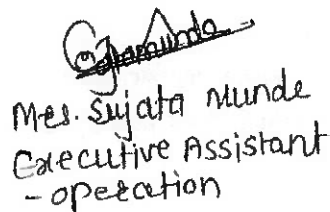 Mrs. Sujata Munde
Executive Assistant
- operation